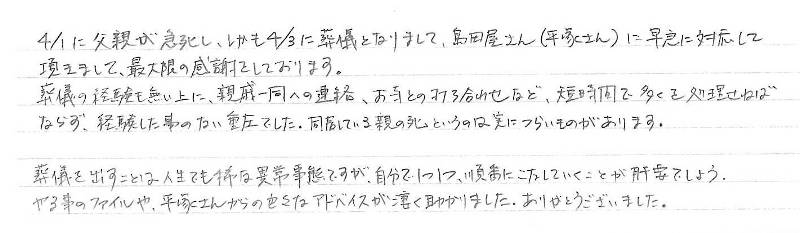 4/1に父親が急死し、しかも4/3に葬儀となりまして、島田屋さん(平塚さん)に早急に対応して
頂きまして、最大限の感謝をしております。
葬儀の経験も無い上に、親戚一同への連絡、お寺との打ち合わせなど、短時間で多くを処理せねば
ならず、経験した事のない重圧でした。同居している親の死というのは実につらいものがあります。
葬儀を出すことは人生でも稀な異常事態ですが、自分で1つ1つ、順番にこなしていくことが肝要でしょう。
やる事のファイルや、平塚さんからの色々なアドバイスが凄く助かりました。ありがとうございました。